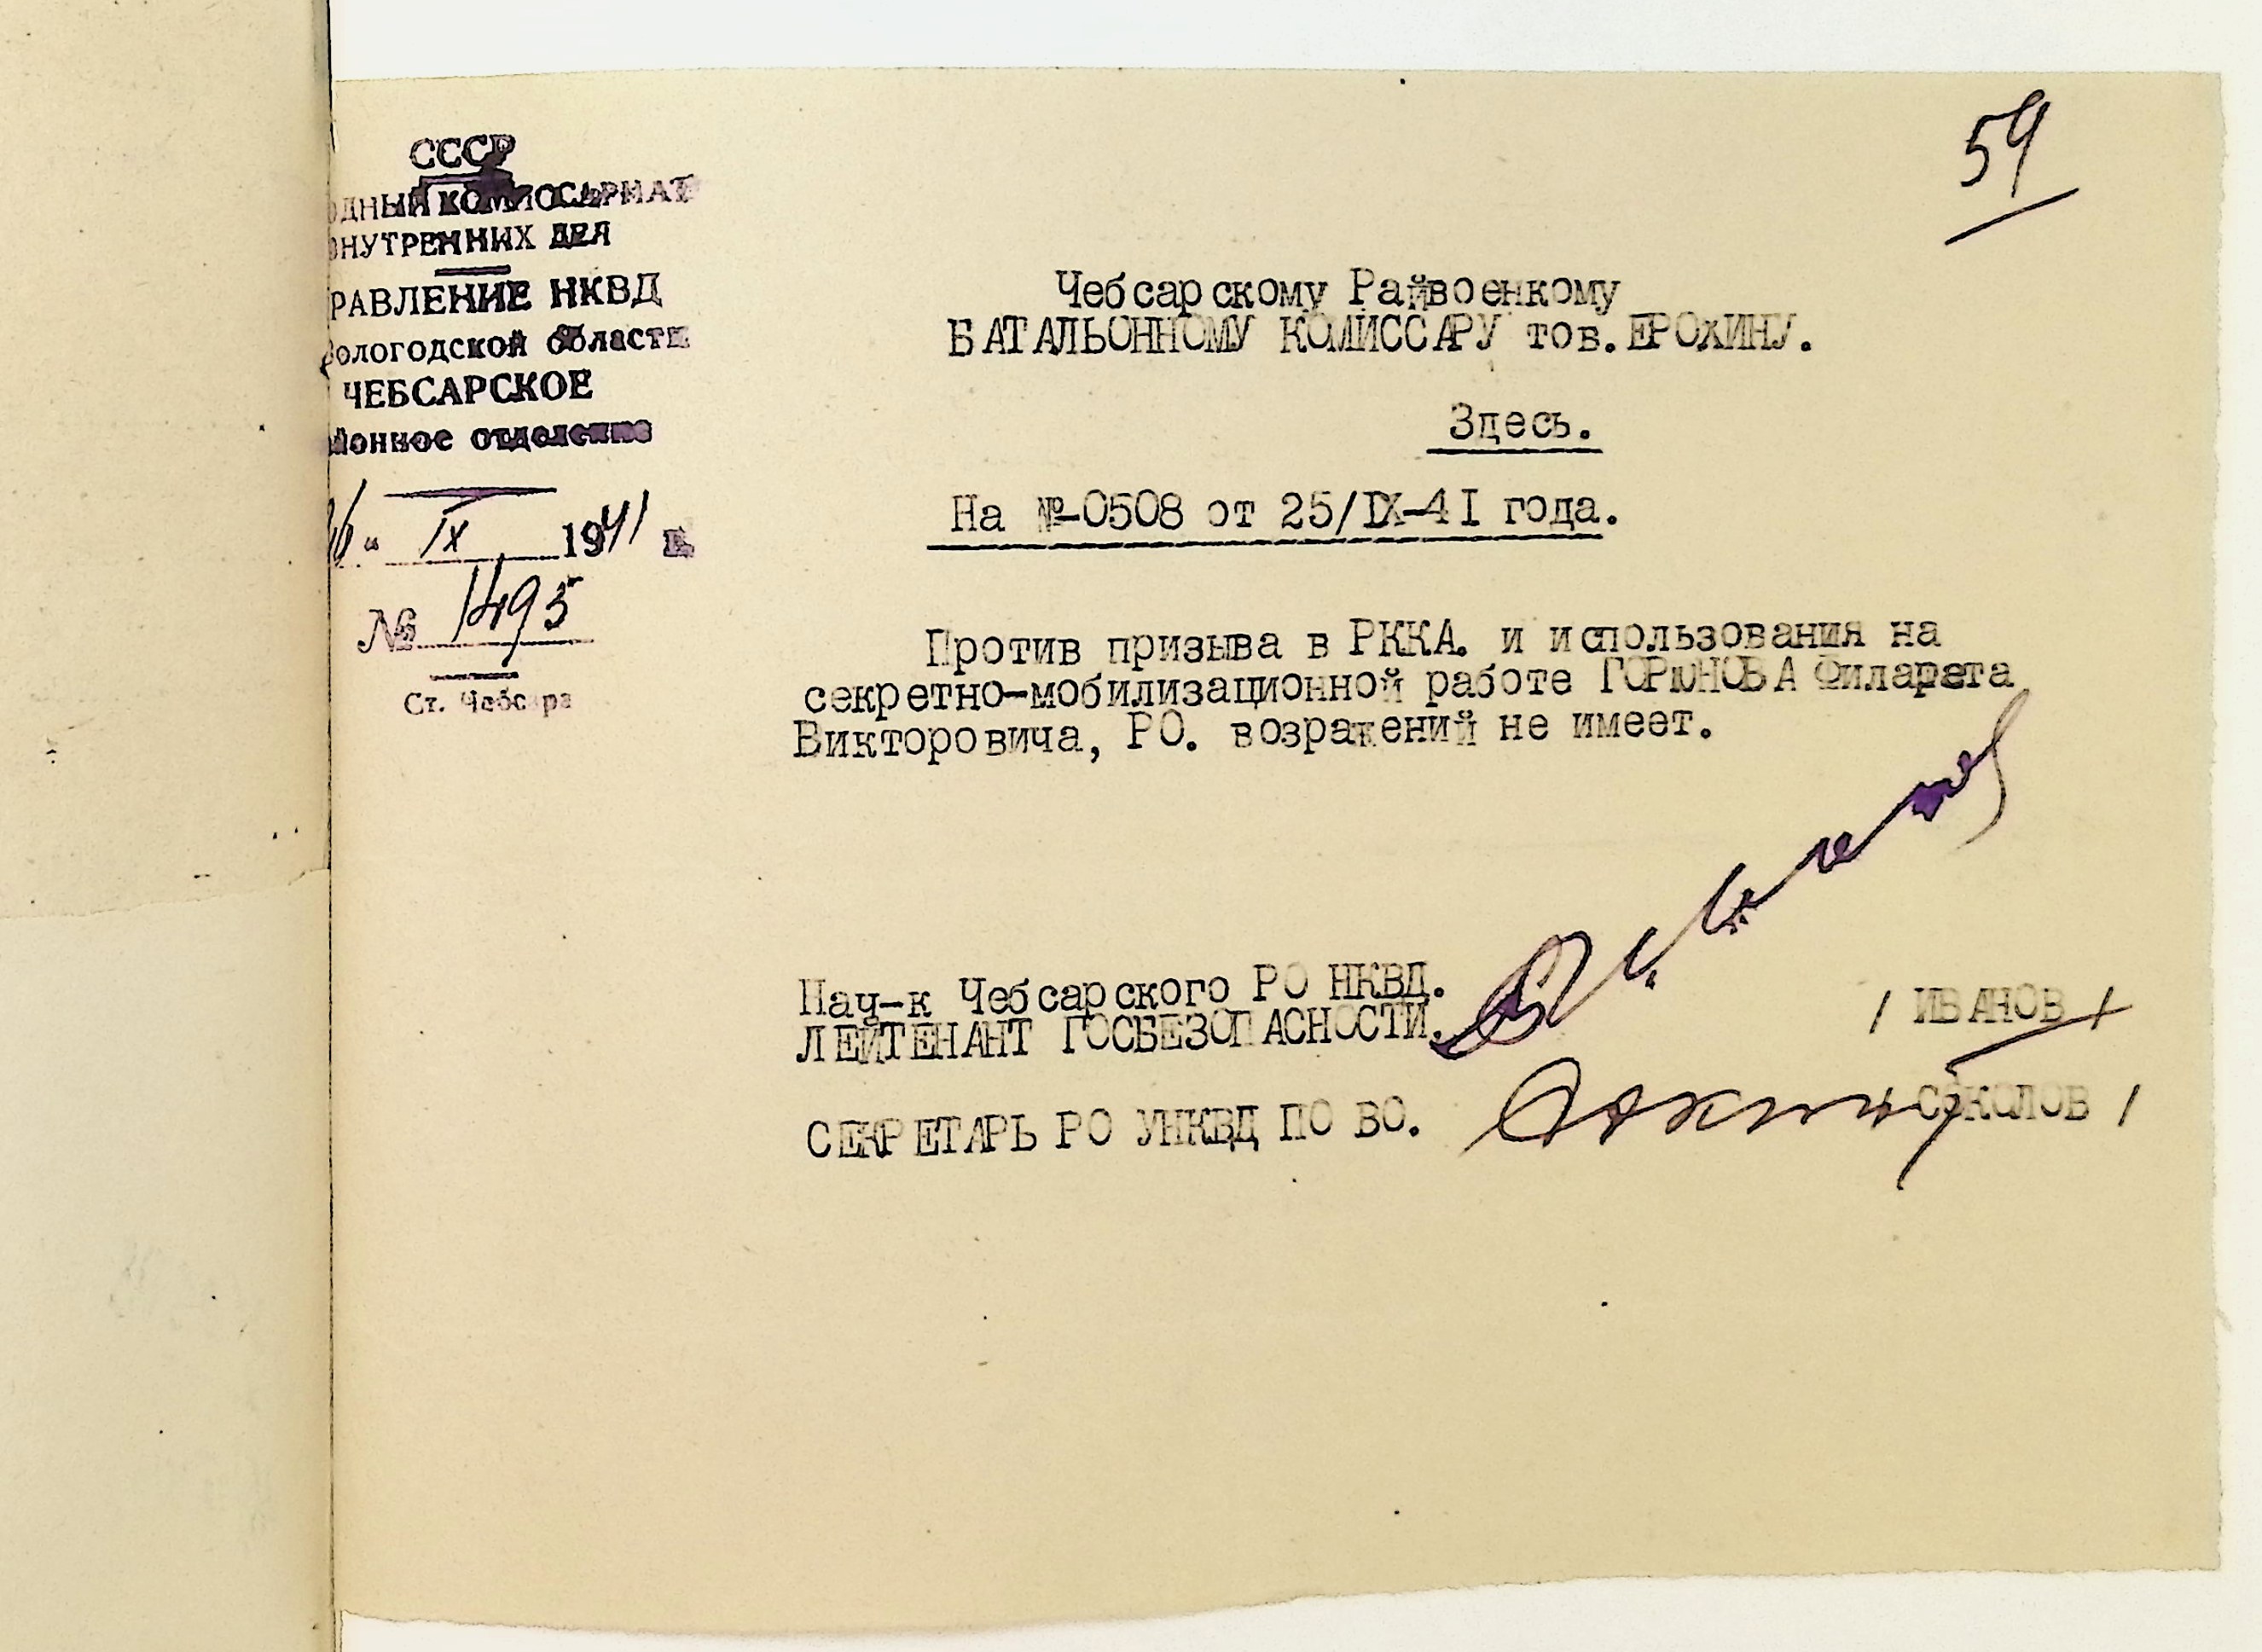 59
СССР
ОДНЫЙ КОМИССАРИАТ
ВНУТРЕННИХ ДЕЛ
РАВЛЕНИЕ НКВД
Вологодской области
ЧЕБСАРСКОЕ
йонное отделение
26 " IX 1941 г.
№ 1495
Ст. Чебсара
Чебсарскому Райвоенкому
БАТАЛЬОННОМУ КОМИССАРУ тов. ЕРОХИНУ.
Здесь.
На №-0508 от 25/IX-41 года.
Против призыва в РККА. и использования на
секретно-мобилизационной работе ГОРЮНОВА Филарета
Викторовича, РО. возражений не имеет.
Нач-к Чебсарского РО НКВД.
ЛЕЙТЕНАНТ ГОСБЕЗОПАСНОСТИ. / ИВАНОВ /
СЕКРЕТАРЬ РО УНКВД ПО ВО. / СОКОЛОВ /